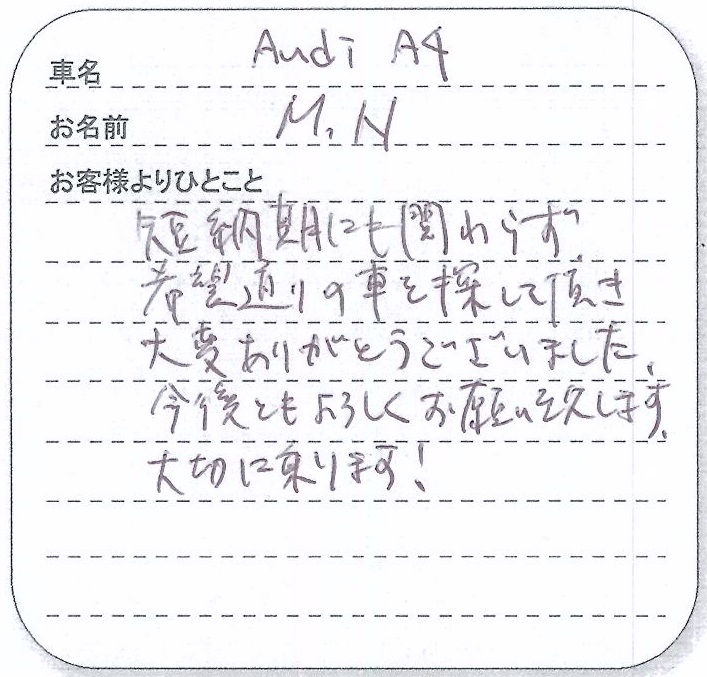 車名 Audi A4
お名前 M.N
お客様よりひとこと
短納期にも関わらず、
希望通りの車を探して頂き
大変ありがとうございました。
今後ともよろしくお願い致します。
大切に乗ります!